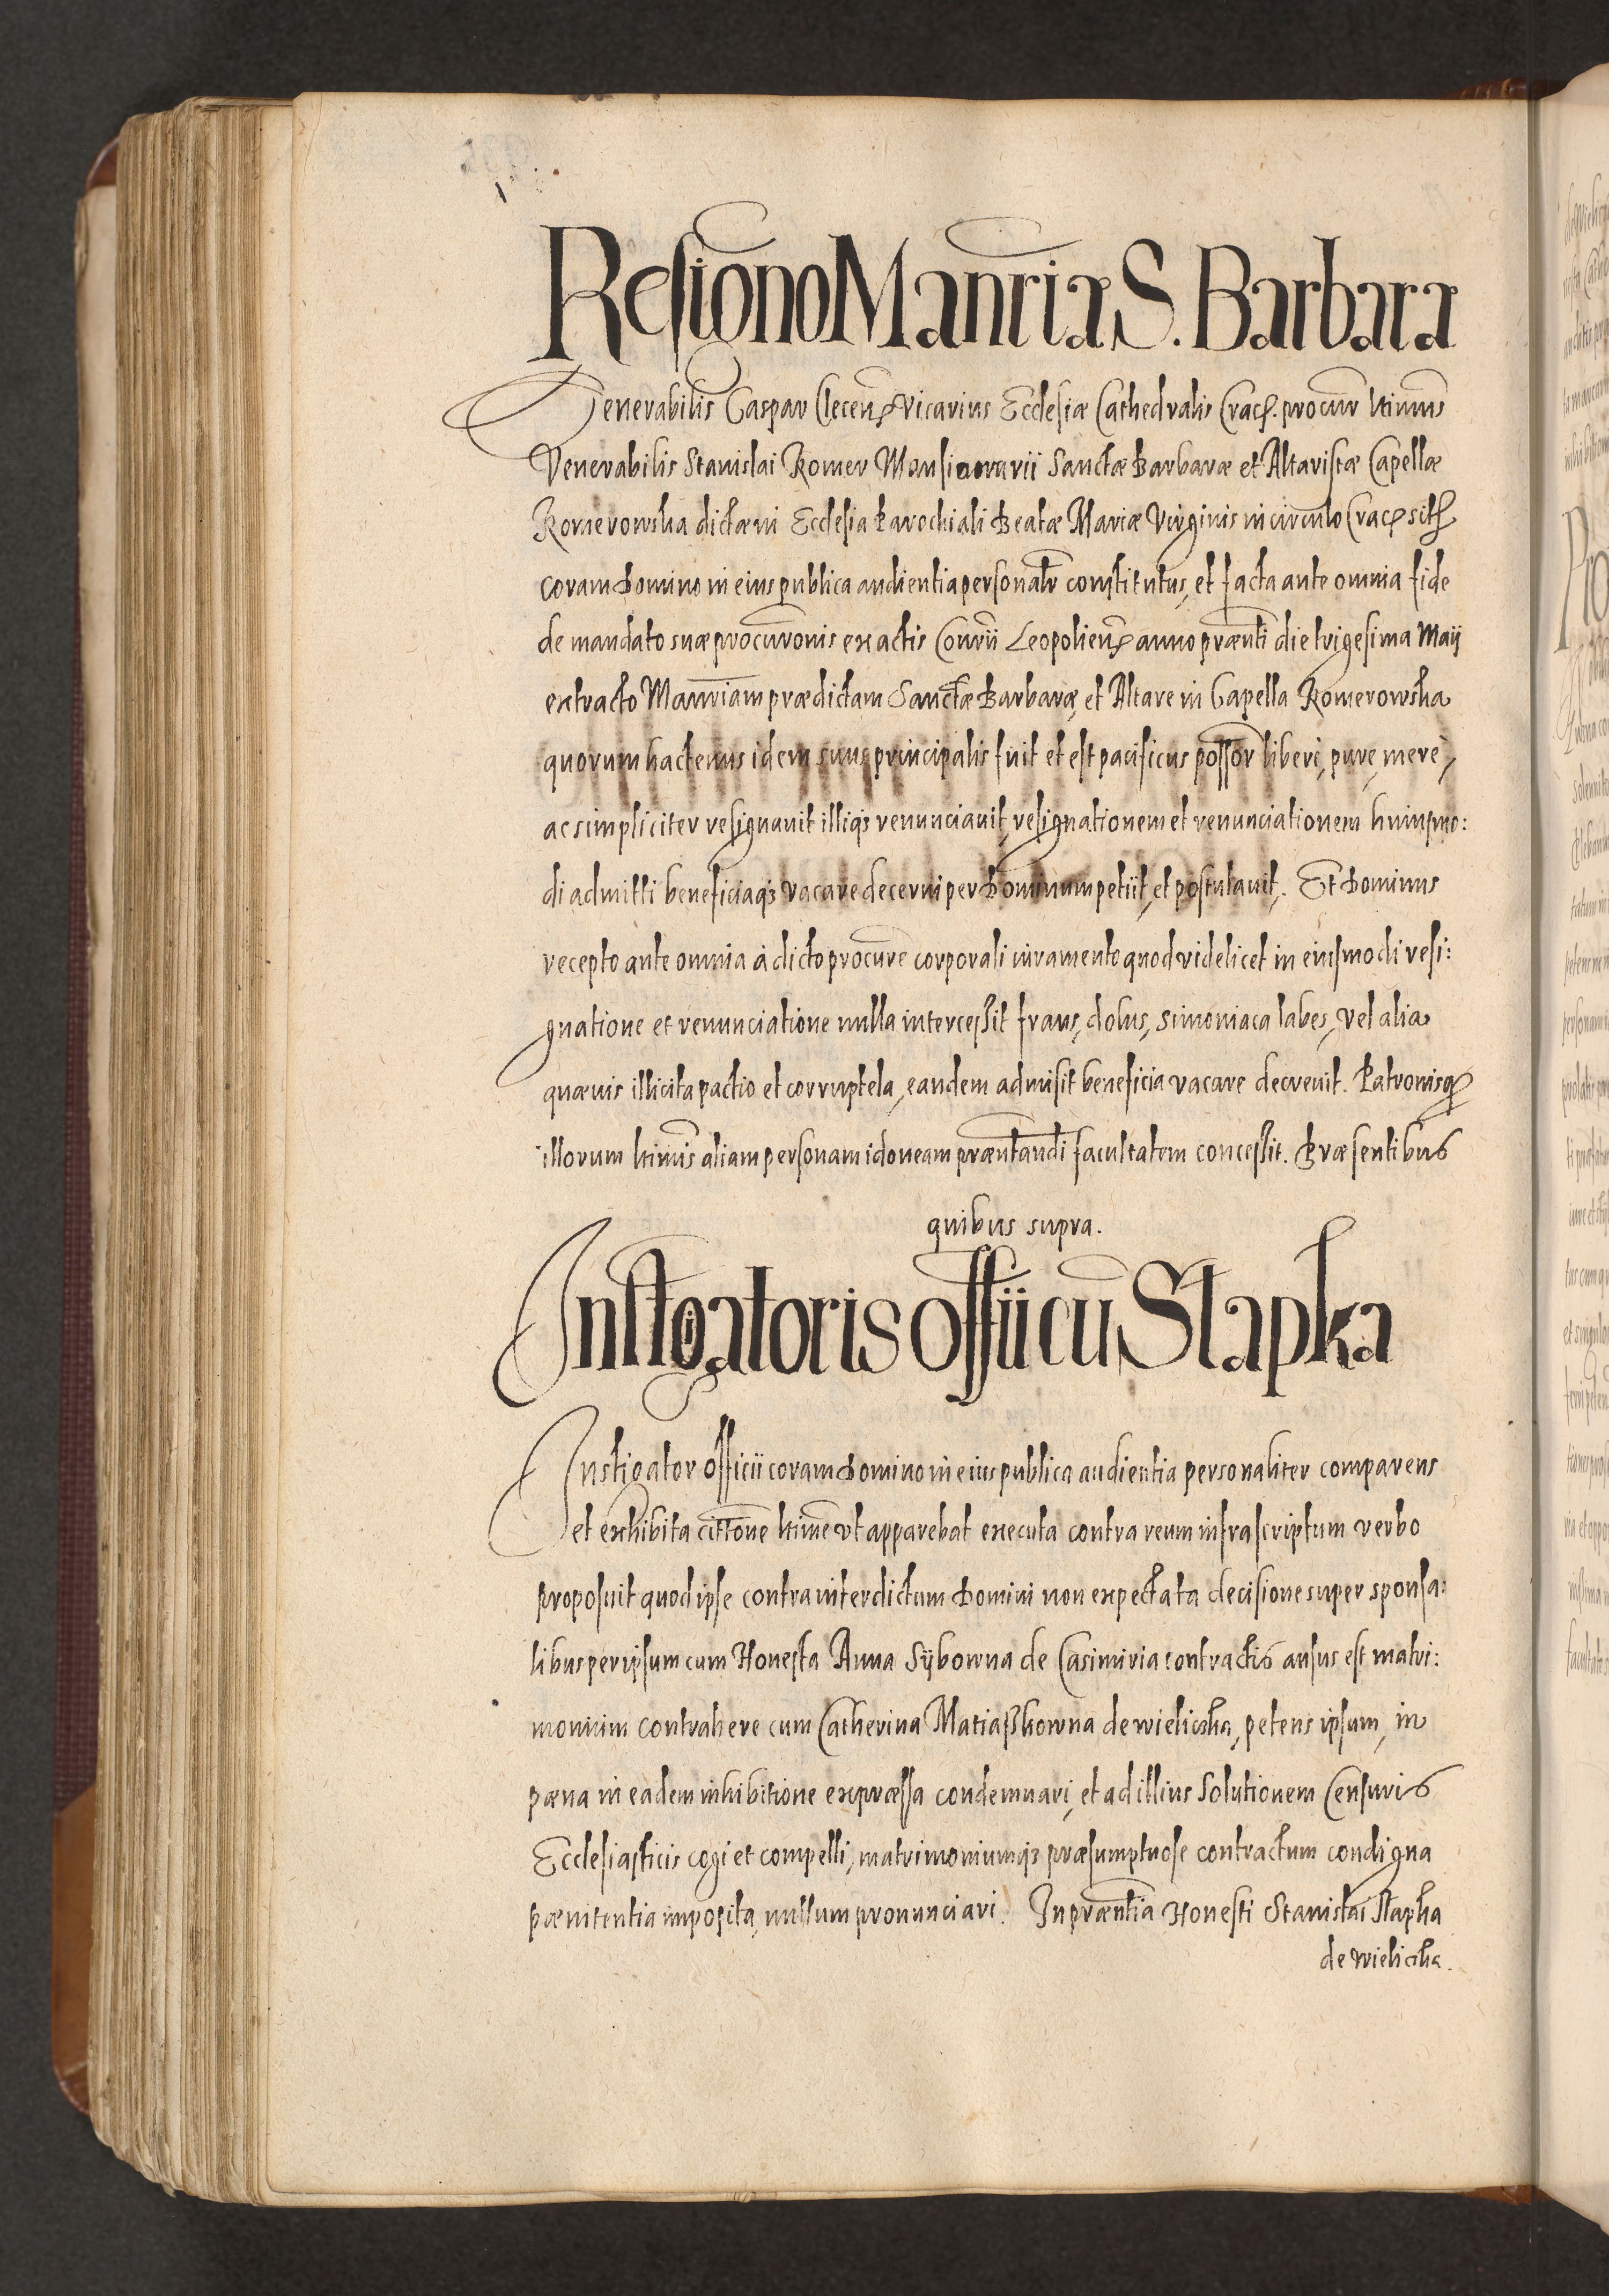 Resigno Manriæ S. Barbaræ
Venerabilis Caspar Clecens Vicarius Ecclesiæ Cathedralis Crac. procur ltimus
Venerabilis Stanislai Komer Mansionarii Sanctæ Barbaræ et Altaristæ Capellæ
Komerowska dictæ in Ecclesia Parochiali Beatæ Mariæ Virginis in circulo Crac sit
coram Domino in eius publica audientia personalr constitutus, et facta ante omnia fide
de mandato suæ procuronis ex actis Consrii Leopoliens anno prænti die trigesima Maij
extracto Manriam prædictam Sanctæ Barbaræ, et Altare in Capella Komerowska
quorum hactenus idem suus principalis fuit et est pacificus possor liberè, purè, merè,
ac simpliciter resignauit illiqs renunciauit, resignationem et renunciationem huiusmo:
di admitti beneficiaqs vacare decerni per Dominum petiit, et postulauit. Et Dominus
recepto ante omnia à dicto procure corporali iuramento quod videlicet in eiusmodi resi:
gnatione et renunciatione nulla intercessit fraus, dolus, simoniaca labes, vel alia
quævis illicita pactio et corruptela, eandem admisit beneficia vacare decreuit. Patronisq
illorum ltimis aliam personam idoneam præntandi facultatem concessit. Præsentibus
quibus supra.
Instigatoris offii cu Stapka
Instigator officii coram Domino in eius publica audientia personaliter comparens
et exhibita cittone ltime vt apparebat executa contra reum infrascriptum verbo
proposuit quod ipse contra interdictum Domini non expectata decisione super sponsa:
libus per ipsum cum Honesta Anna Sÿbowna de Casimiria contractis ausus est matri:
monium contrahere cum Catherina Matiaßkowna de wielicska, petens ipsum, in
pæna in eadem inhibitione expræssa condemnari, et ad illius solutionem Censuris
Ecclesiasticis cogi et compelli, matrimoniumqs præsumptuose contractum condigna
pænitentia imposita, nullum pronunciari. In præntia Honesti Stanislai Stapka
de wielicska.